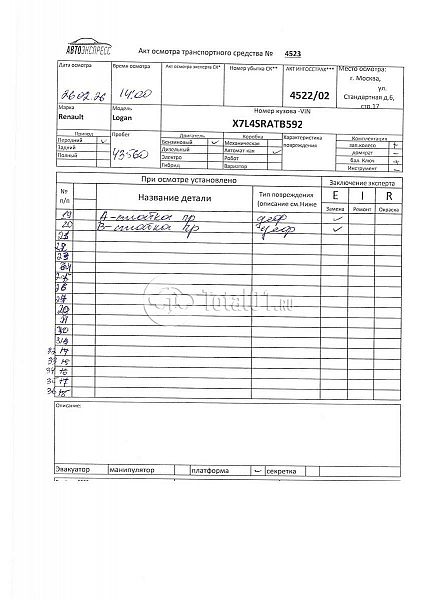 АВТОЭКСПРЕСС
Акт осмотра транспортного средства № 4523
Дата осмотра Время осмотра Акт осмотра эксперта СК* Номер убытка СК** АКТ ИНГОССТРАХ*** Место осмотра:
г. Москва,
26.02.26 14:00 4522/02 ул.
Стандартная д.6,
стр.17
Марка Модель Номер кузова -VIN
Renault Logan X7L4SRATB592
Привод Пробег Двигатель Коробка Характеристика повреждения Комплектация
Передний ✓ Бензиновый ✓ Механическая зап.колесо +
Задний 43560 Дизельный Автомат-кая ✓ домкрат -
Полный Электро Робот бал. Ключ +
Гибрид Вариатор Инструмент -
При осмотре установлено Заключение эксперта
№ п/п Название детали Тип повреждения (описание см.Ниже E I R
Замена Ремонт Окраска
19 А-стойка пр деф ✓
20 В-стойка пр деф ✓
Total01.ru
Описание:
Эвакуатор манипулятор платформа ✓ секретка